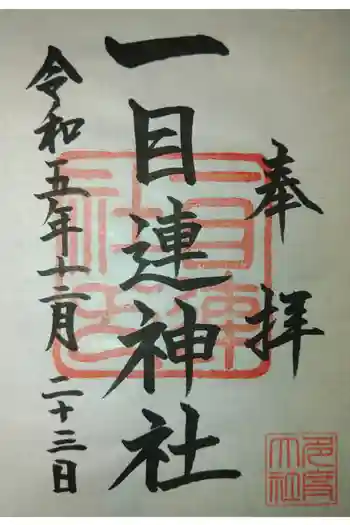 奉拝
一目連神社
令和五年十二月二十三日